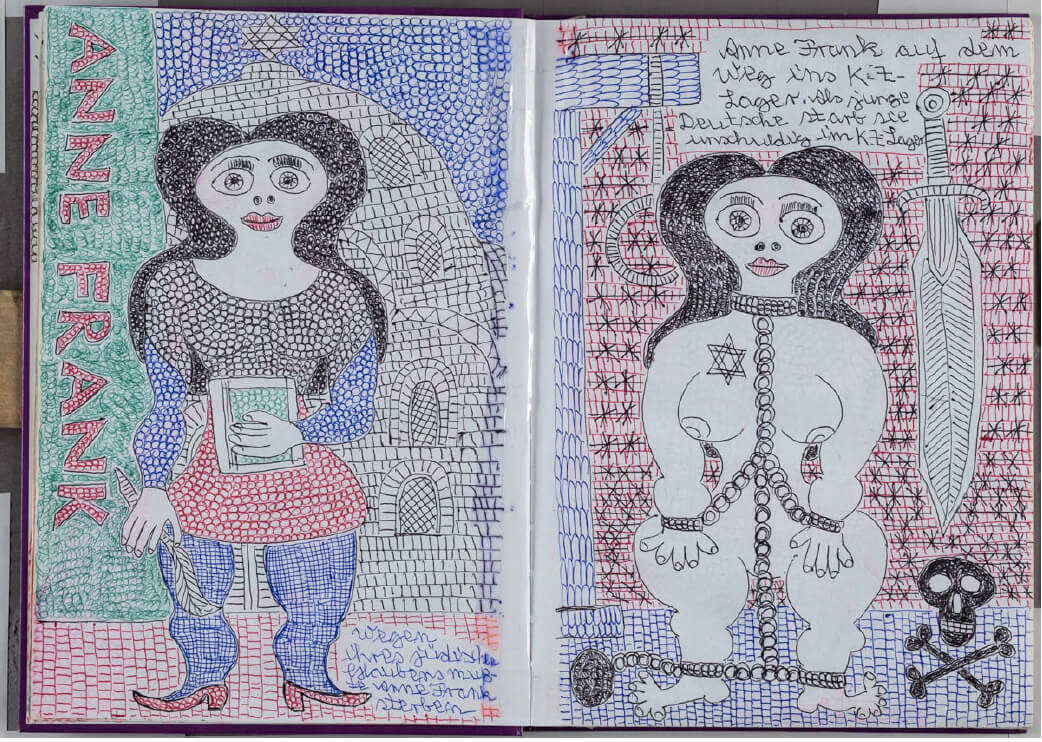 ANNE FRANK
wegen
ihres jüdischen
Glaubens muß-
te Anne Frank
sterben
Anne Frank auf dem
Weg ins K.Z-
Lager. Als junge
Deutsche starb sie
unschuldig im K.Z Lager